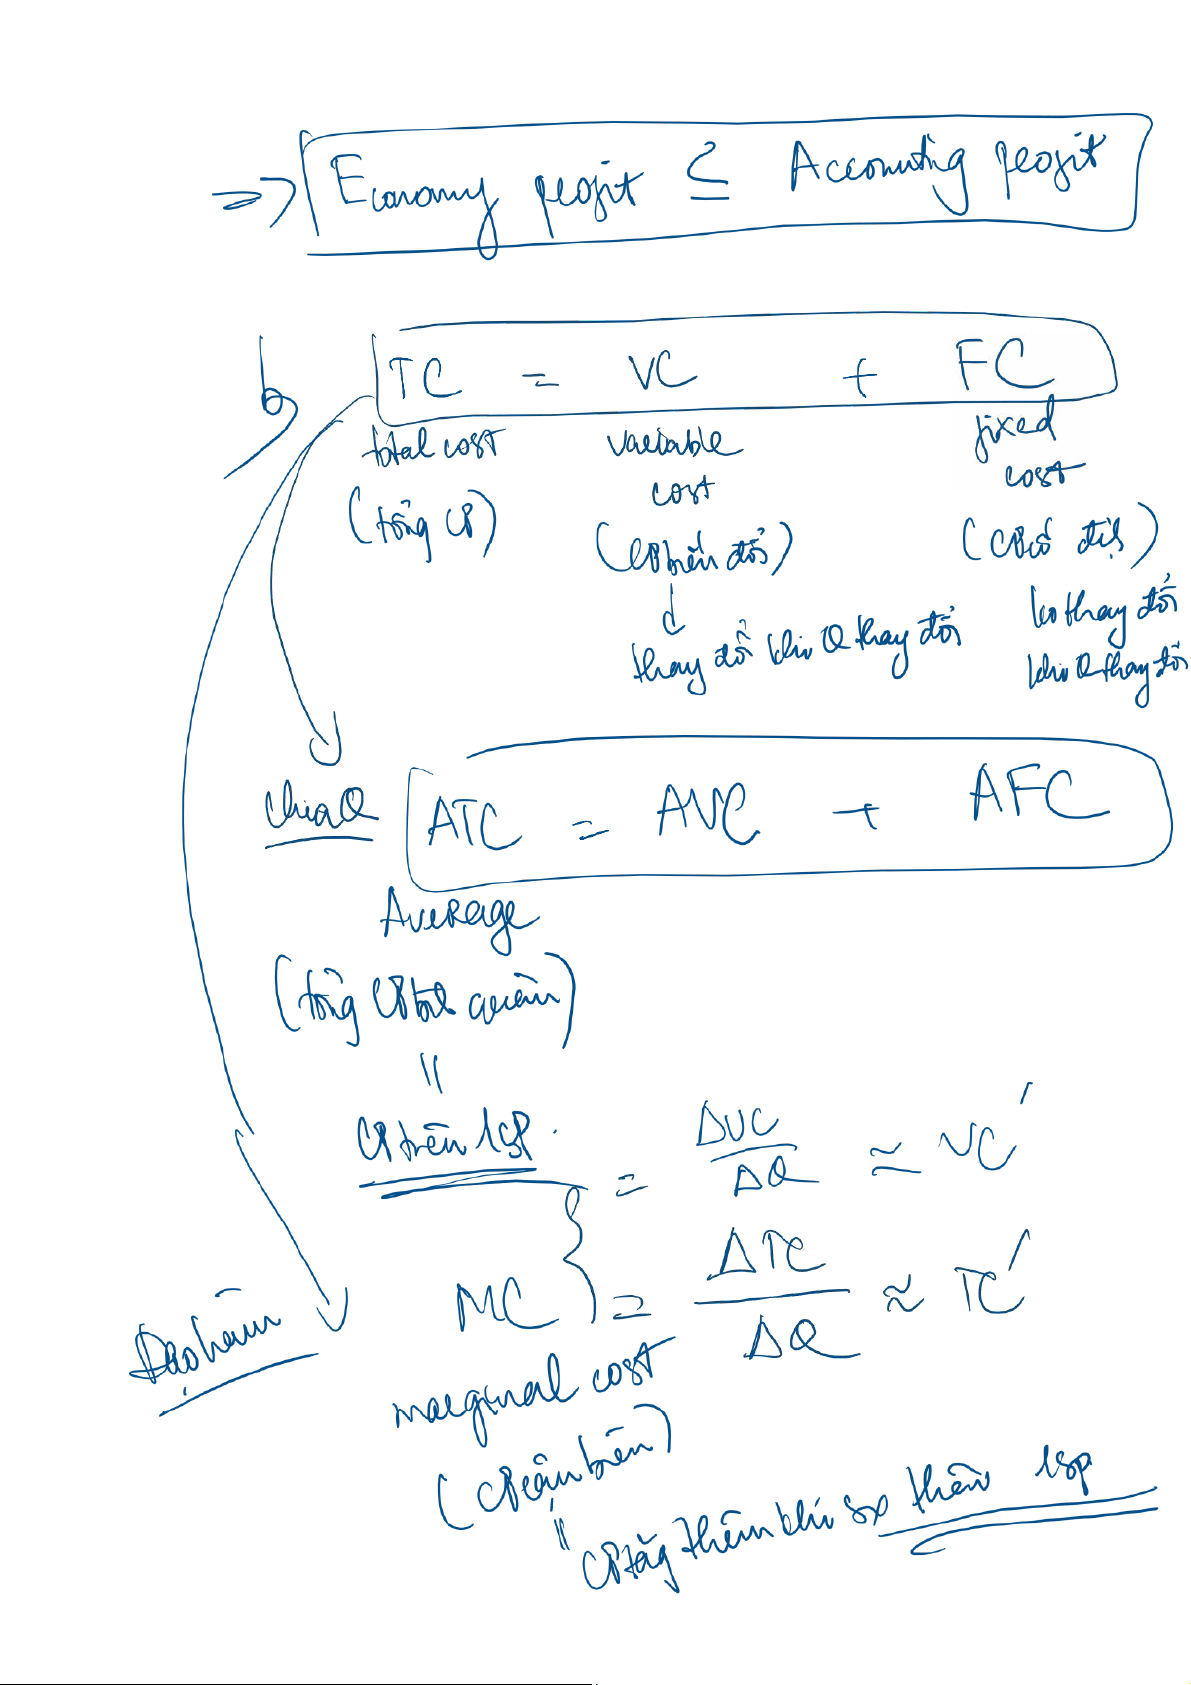 => Economy profit ≤ Accounting profit
b) TC = VC + FC
total cost variable cost fixed cost
(tổng CP) (CP biến đổi) (CP cố định)
↓ thay đổi khi Q thay đổi ko thay đổi khi Q thay đổi
chia Q ATC = AVC + AFC
Average
(tổng CP bình quân)
=
CP trên 1SP. = ΔVC/ΔQ ≈ VC'
Đạo hàm MC = ΔTC/ΔQ ≈ TC'
marginal cost
(CP cận biên)
= CP tăng thêm khi sx thêm 1sp